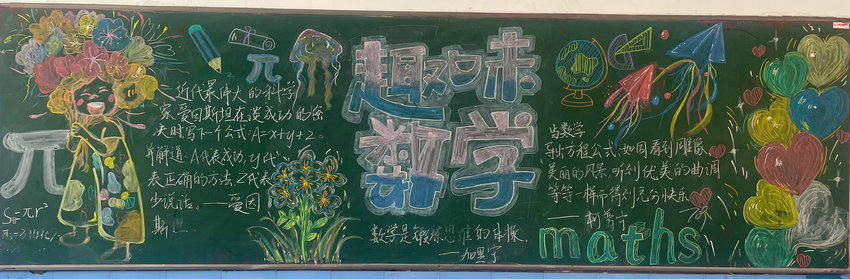 π
S=πr²
π
近代最伟大的科学
家爱因斯坦在谈成功的秘
诀时写下一个公式:A=x+y+z。
并解道:A代表成功,
表正确的方法,Z代表
少说话。——爱因
斯坦
趣味
数学
数学是锻炼思维的体操
——加里宁
当数学
导出方程公式,如同看到雕像,
美丽的风景,听到优美的曲调
等等一样而得到充分快乐
——柯普宁
maths